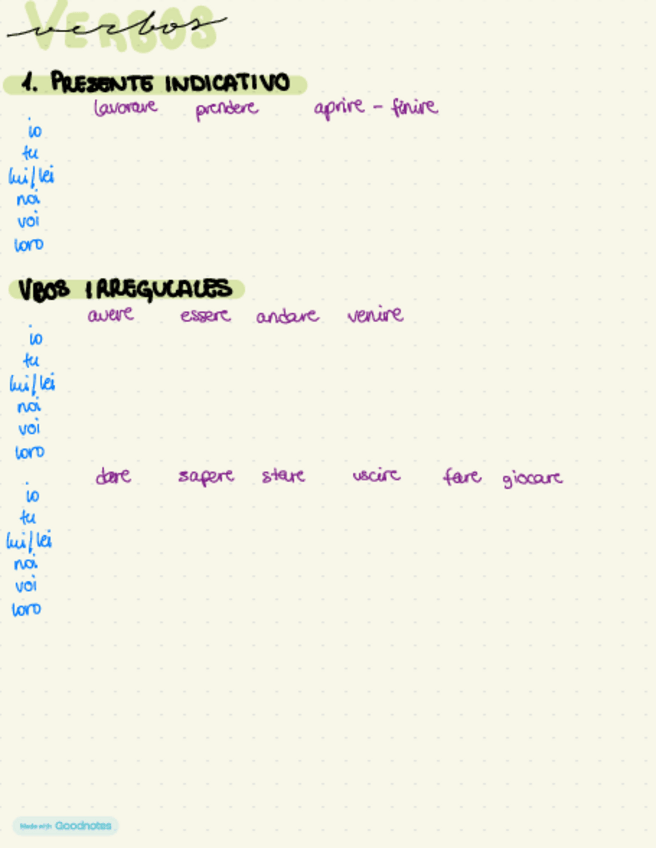 VERBOS
verbos
1. PRESENTE INDICATIVO
lavorare prendere aprire - finire
io
tu
lui/lei
noi
voi
loro
VBOS IRREGULALES
avere essere andare venire
io
tu
lui/lei
noi
voi
loro
dare sapere stare uscire fare giocare
io
tu
lui/lei
noi
voi
loro
Made with Goodnotes